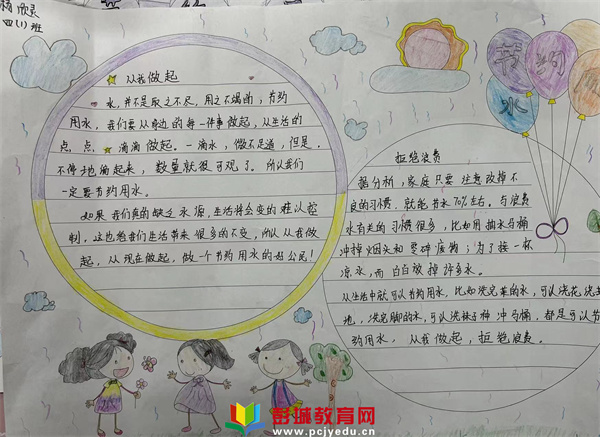 杨欣灵
四(1)班
节约用
水
从我做起
水,并不是取之不尽,用之不竭的,节约
用水,我们要从身边的每一件事做起,从生活的
点、点、滴滴做起。一滴水,微不足道,但是,
不停地滴起来,数量就很可观了。所以我们
一定要节约用水。
如果我们真的缺乏水源,生活将会变的难以控
制,这也给我们生活带来很多的不变,所以从我做
起,从现在做起,做一个节约用水的好公民!
拒绝浪费
据分析,家庭只要注意改掉不
良的习惯,就能节水70%左右,与浪费
水有关的习惯很多,比如用抽水马桶
冲掉烟头和零碎废物;为了接一杯
凉水,而白白放掉许多水。
从生活中就可以节约用水,比如洗完菜的水,可以浇花,洗
地,洗完脚的水,可以洗袜子和冲马桶,都是可以节
约用水,从我做起,拒绝浪费。
彭城教育网
www.pcjyedu.cn